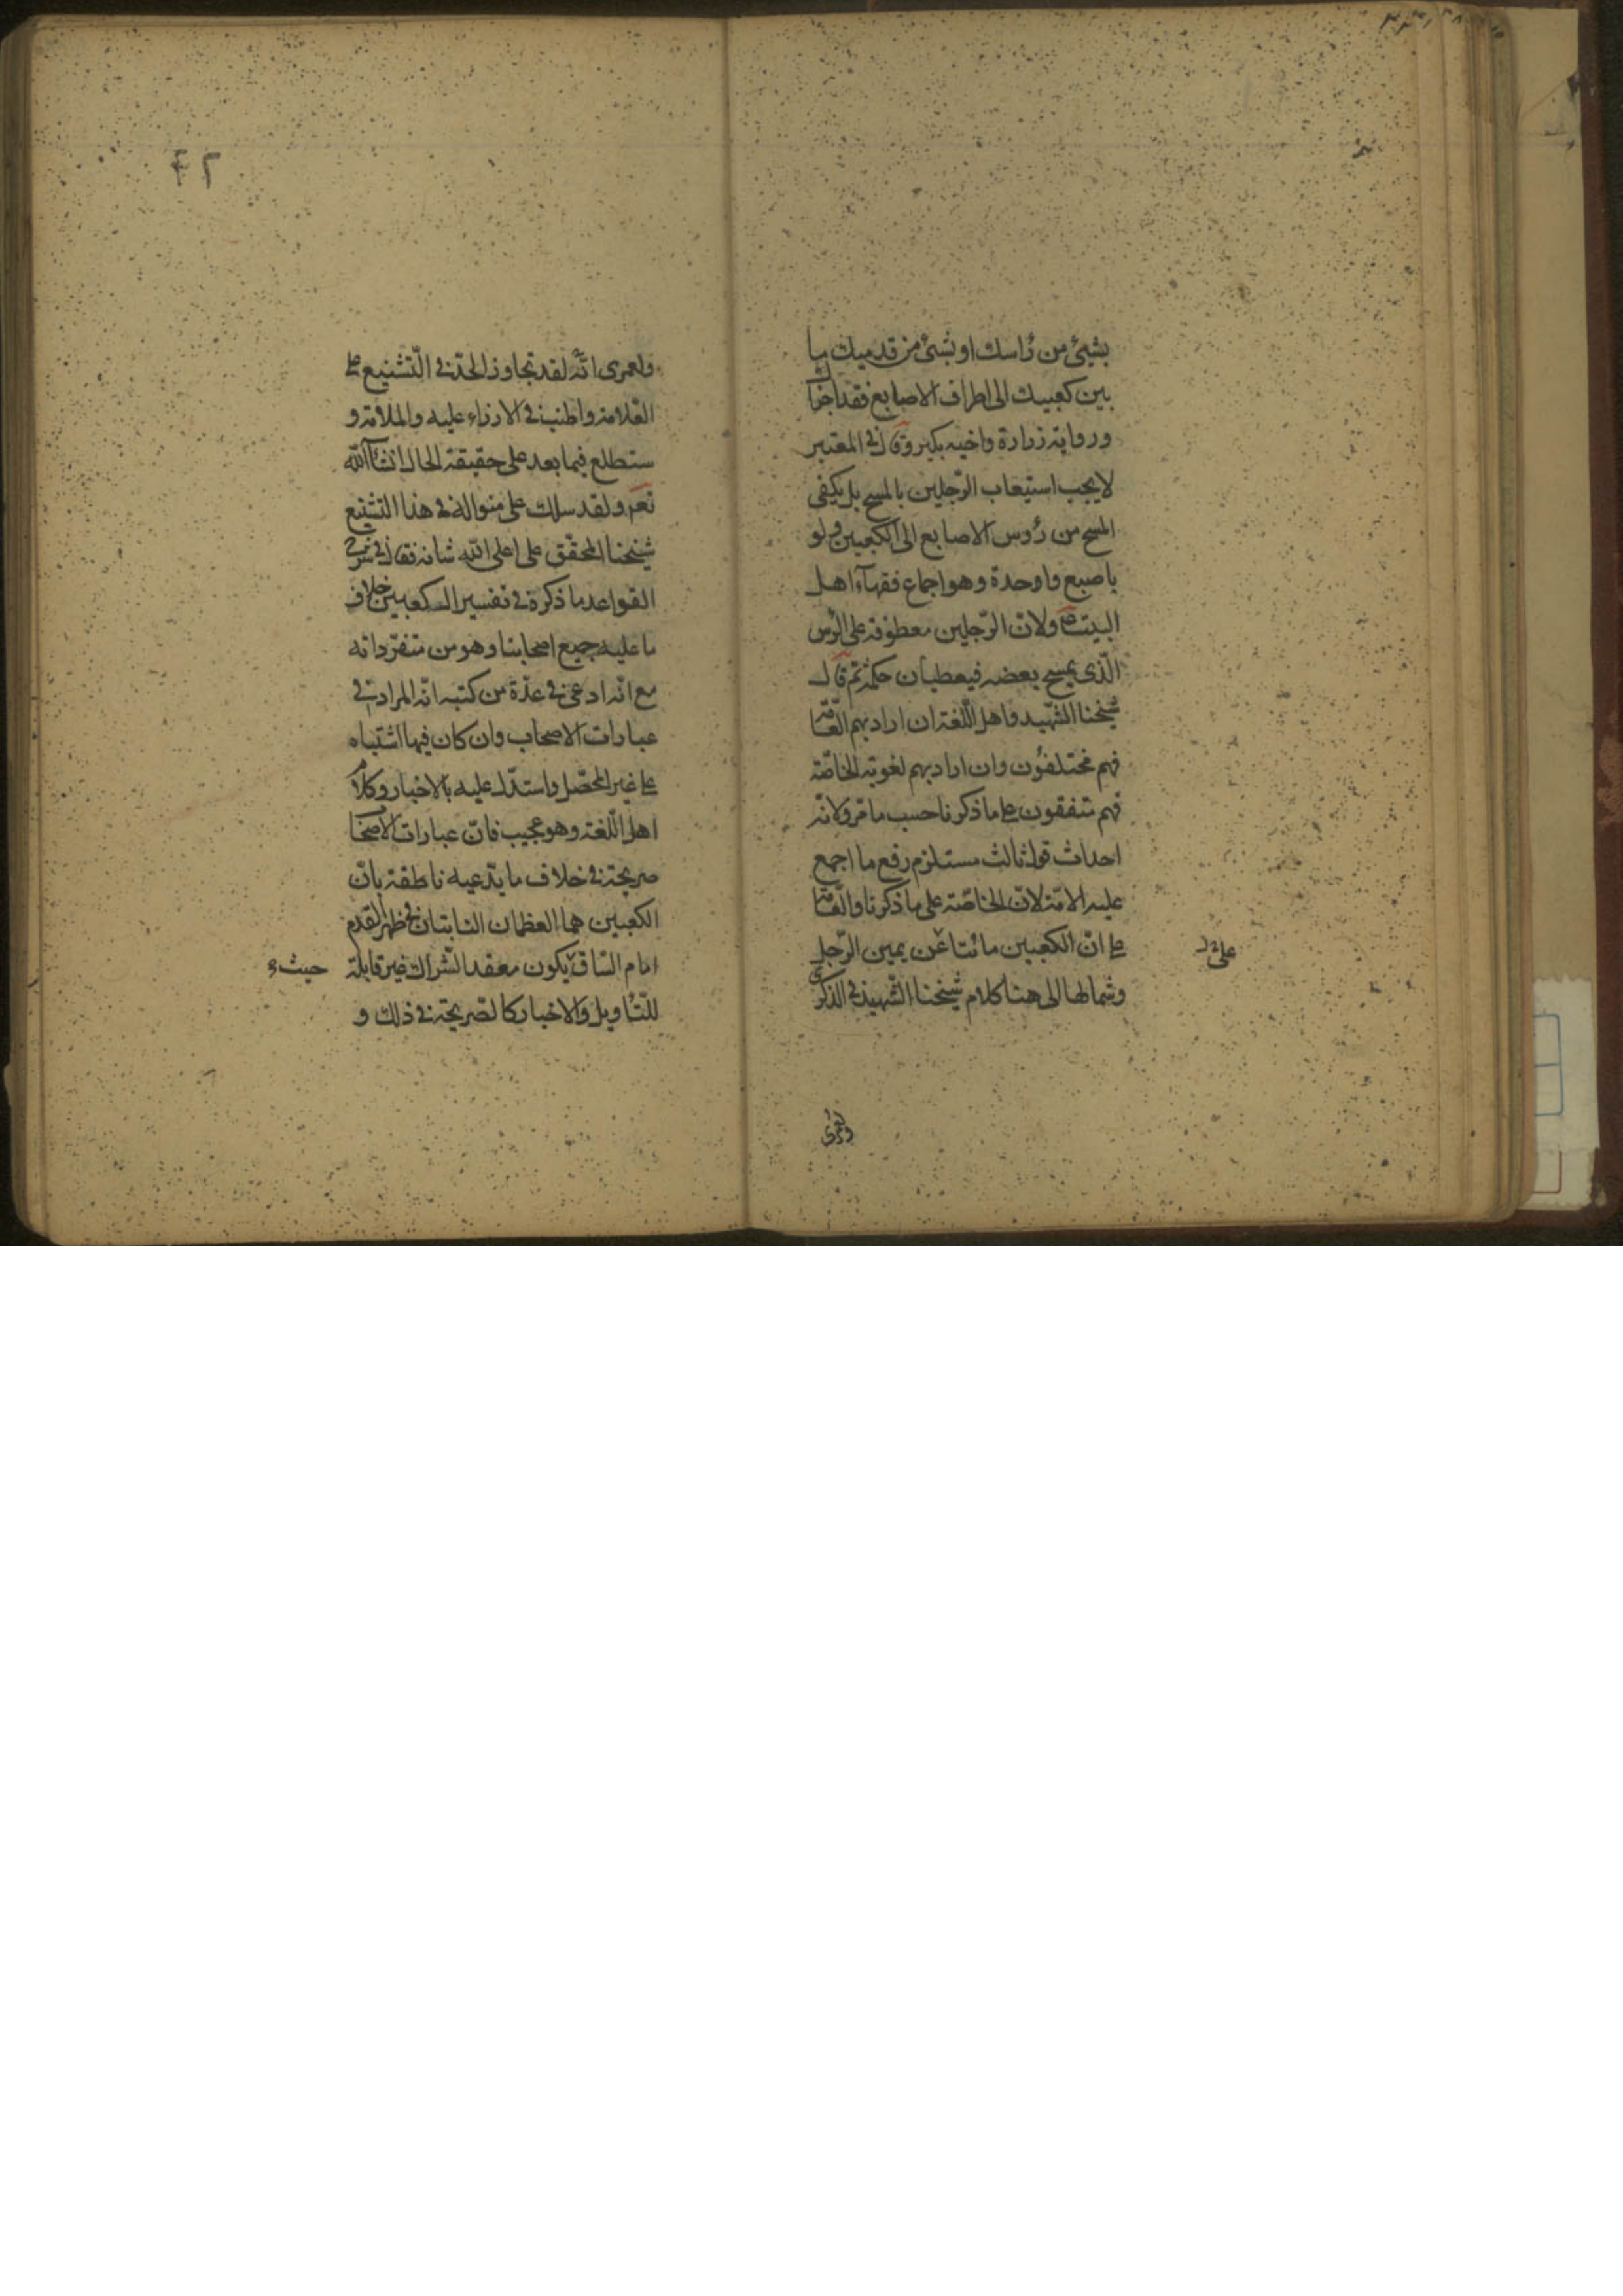 بشیئ من رأسك او بشیئ من قدمیك ما
بین کعبیك الی اطراف الاصابع فقد اجزأك
وروایة زرارة واخیه بکیر وقال فی المعتبر
لایجب استیعاب الرّجلین بالمسح بل یکفی
المسح من رؤس الاصابع الی الکعبین ولو
باصبع واحدة وهو اجماع فقهآء اهل
البیت ولانّ الرّجلین معطوفة علی الرأس
الّذی یمسح بعضه فیعطیان حکمه ثم قال
شیخنا الشّهید واهل اللّغة ان اراد بهم العامّة
فهم مختلفون وان اراد بهم لغویّة الخاصّة
فهم متفقون علی ما ذکرنا حسب ما مر ولانّه
احداث قول ثالث مستلزم رفع ما اجمع
علیه الامّة لانّ الخاصّة علی ما ذکرنا والعامّة
علی انّ الکعبین ما نتأ عن یمین الرّجل
وشمالها الی هنا کلام شیخنا الشّهید فی الذکری
ولعمری
۴۲
ولعمری انّه لقد تجاوز الحدّ فی التّشنیع علی
العلامة واطنب فی الازراء علیه والملامة و
ستطلع فیما بعد علی حقیقة الحال انشآء الله
تعم ولقد سلك علی منواله فی هذا التشنیع
شیخنا المحقّق علی اعلی الله شانه فقال فی شرح
القواعد ما ذکره فی تفسیر الکعبین خلاف
ما علیه جمیع اصحابنا وهو من متفرداته
مع انّه ادعی فی عدّة من کتبه انّه المراد فی
عبارات الاصحاب وان کان فیها اشتباه
علی غیر المحصّل واستدّل علیه بالاخبار وکلام
اهل اللّغة وهو عجیب فانّ عبارات الاصحاب
صریحة فی خلاف ما یدّعیه ناطقة بانّ
الکعبین هما العظمان النابتان فی ظهر القدم
امام السّاق یکون معقد الشّراك غیر قابلة
حیث
للتّأویل والاخبار کالصّریحة فی ذلك و